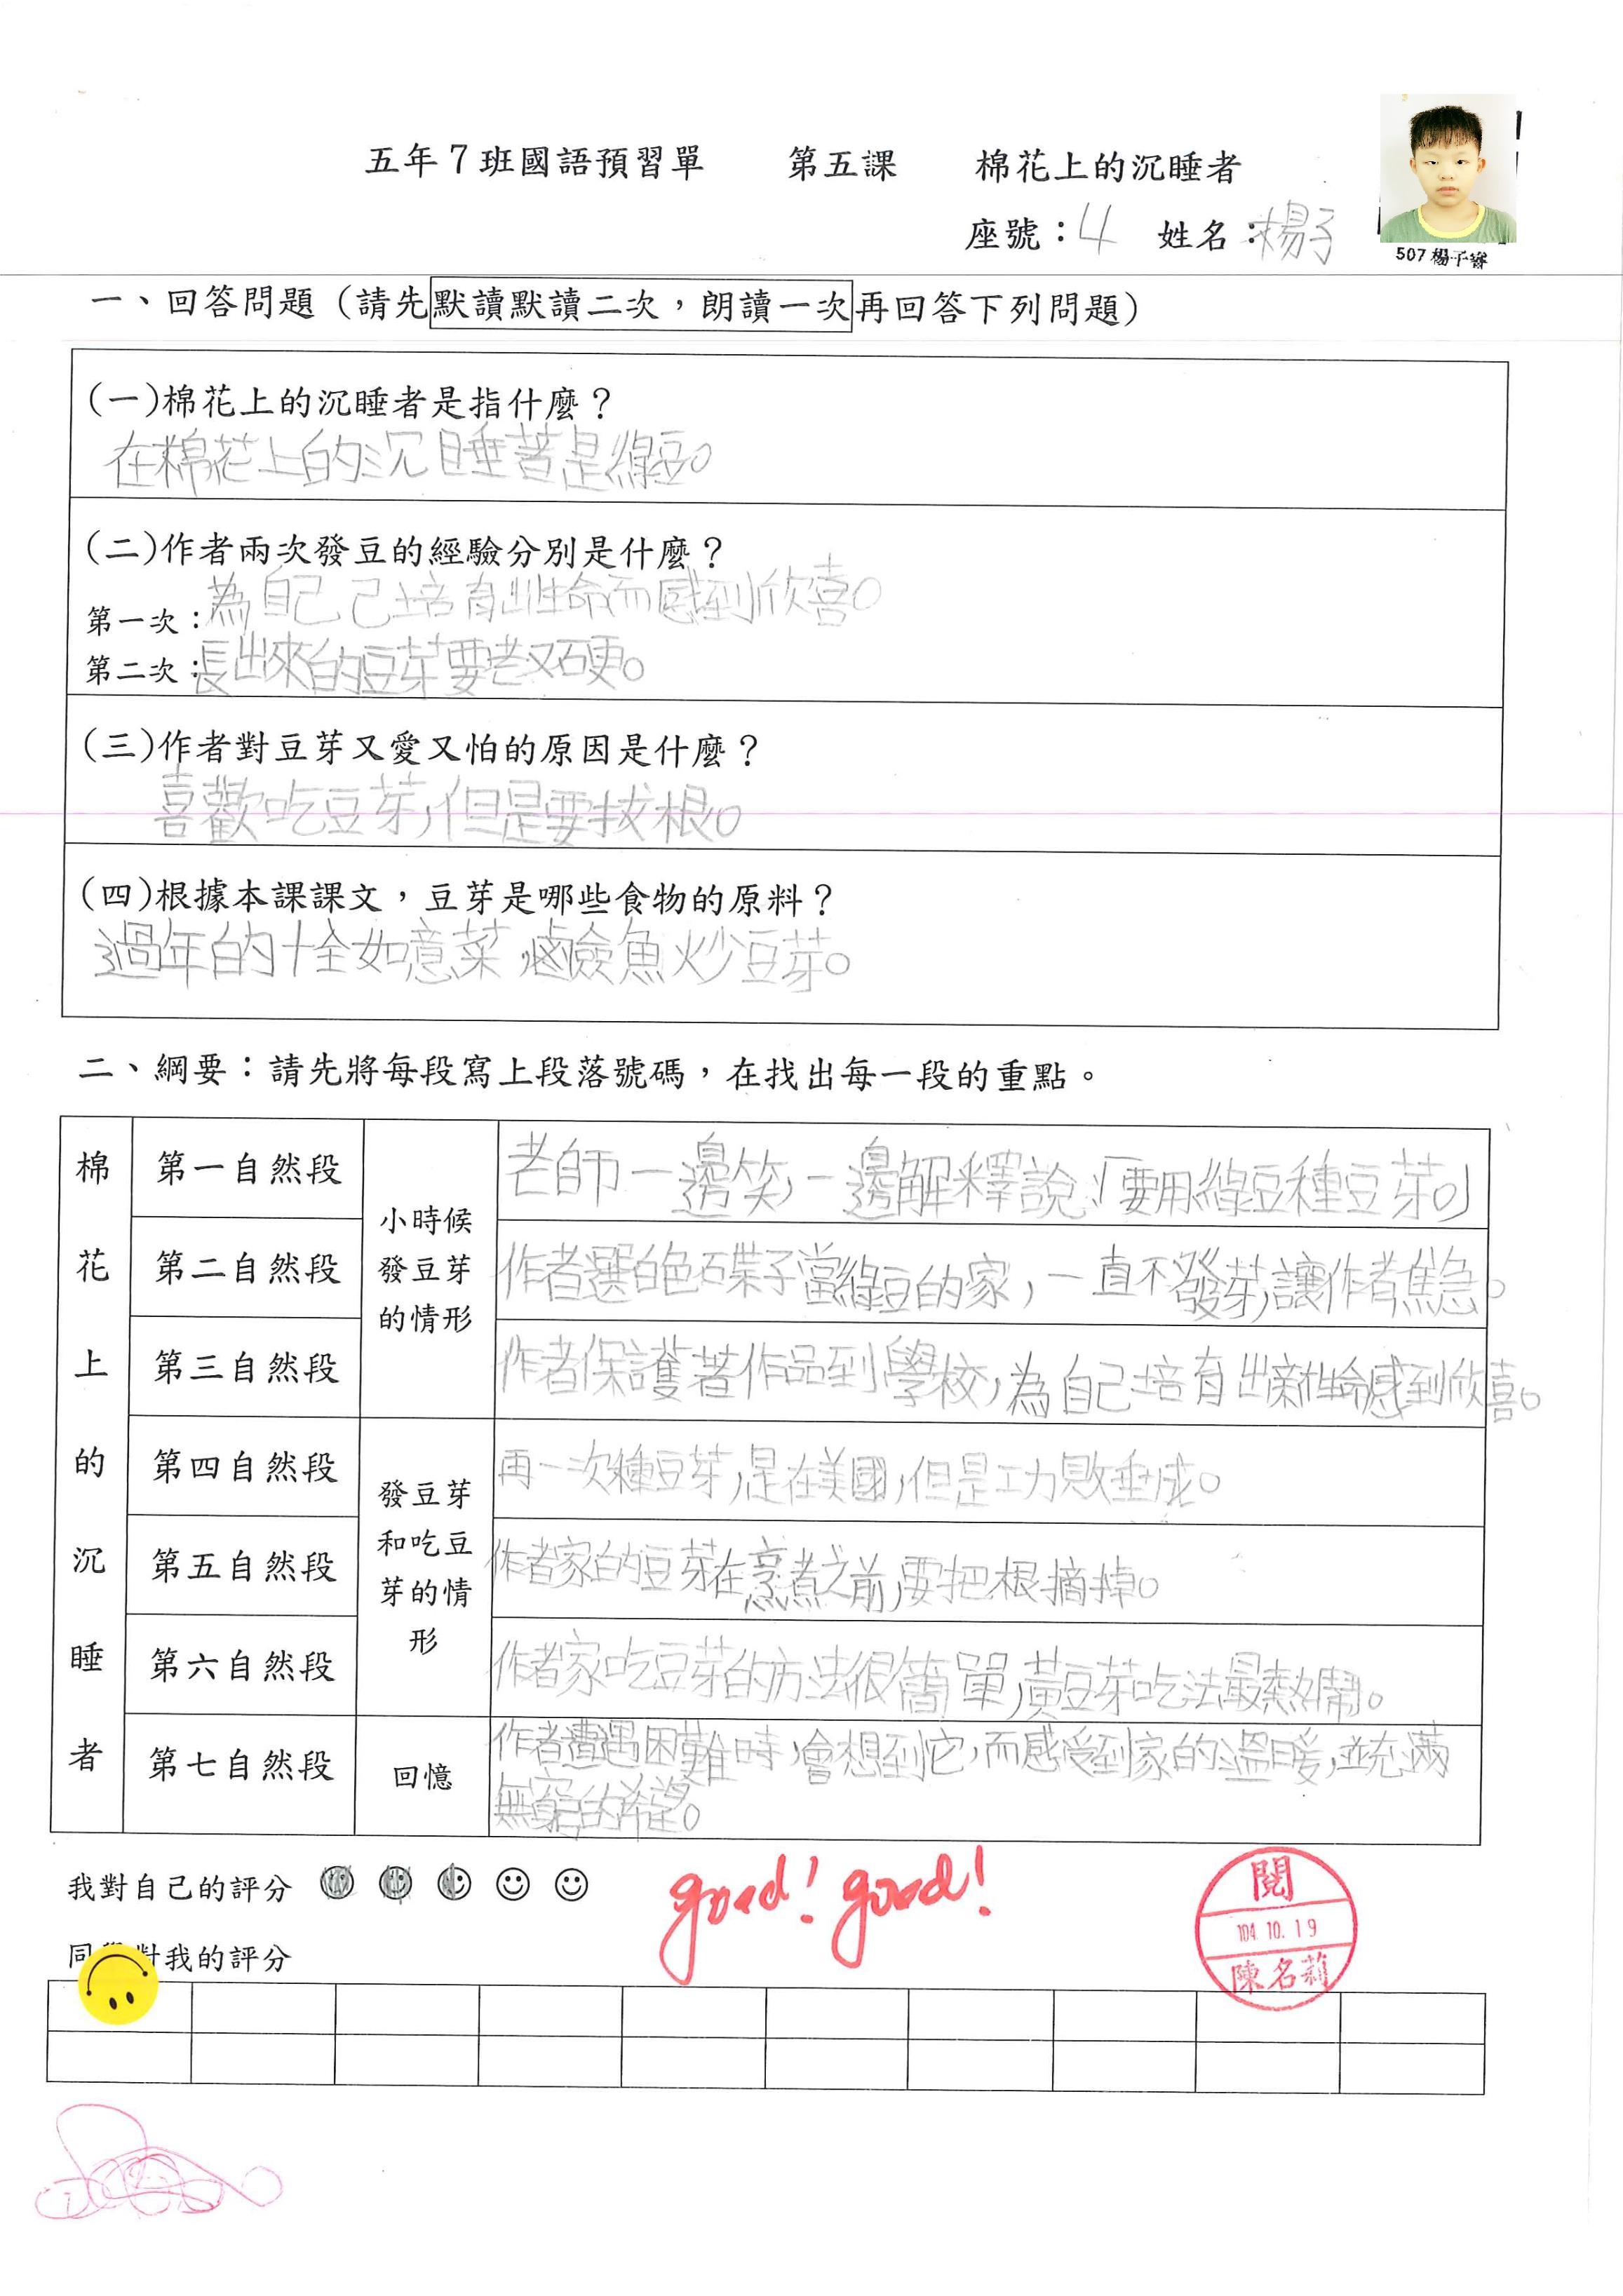 五年7班國語預習單 第五課 棉花上的沉睡者
座號：4 姓名：楊子
507 楊子睿
一、回答問題（請先默讀默讀二次，朗讀一次再回答下列問題）
(一)棉花上的沉睡者是指什麼？
在棉花上的沉睡著是綠豆。
(二)作者兩次發豆的經驗分別是什麼？
第一次：為自己己培育出生命而感到欣喜。
第二次：長出來的豆芽要老又硬。
(三)作者對豆芽又愛又怕的原因是什麼？
喜歡吃豆芽，但是要拔根。
(四)根據本課課文，豆芽是哪些食物的原料？
過年的十全如意菜、鹹魚炒豆芽。
二、綱要：請先將每段寫上段落號碼，在找出每一段的重點。
棉花上的沉睡者
第一自然段
第二自然段
第三自然段
小時候
發豆芽
的情形
老師一邊笑，一邊解釋說：「要用綠豆種豆芽。」
作者選白色碟子當綠豆的家，一直不發芽，讓作者焦急。
作者保護著作品到學校，為自己培育出新生命感到欣喜。
第四自然段
第五自然段
第六自然段
發豆芽
和吃豆
芽的情
形
再一次種豆芽，是在美國，但是功敗垂成。
作者家的豆芽在烹煮之前，要把根摘掉。
作者家吃豆芽的方法很簡單，黃豆芽吃法最熱鬧。
第七自然段
回憶
作者遭遇困難時，會想到它，而感受到家的溫暖，並充滿
無窮的希望。
我對自己的評分
good! good!
閱
104.10.19
陳名莉
同學對我的評分